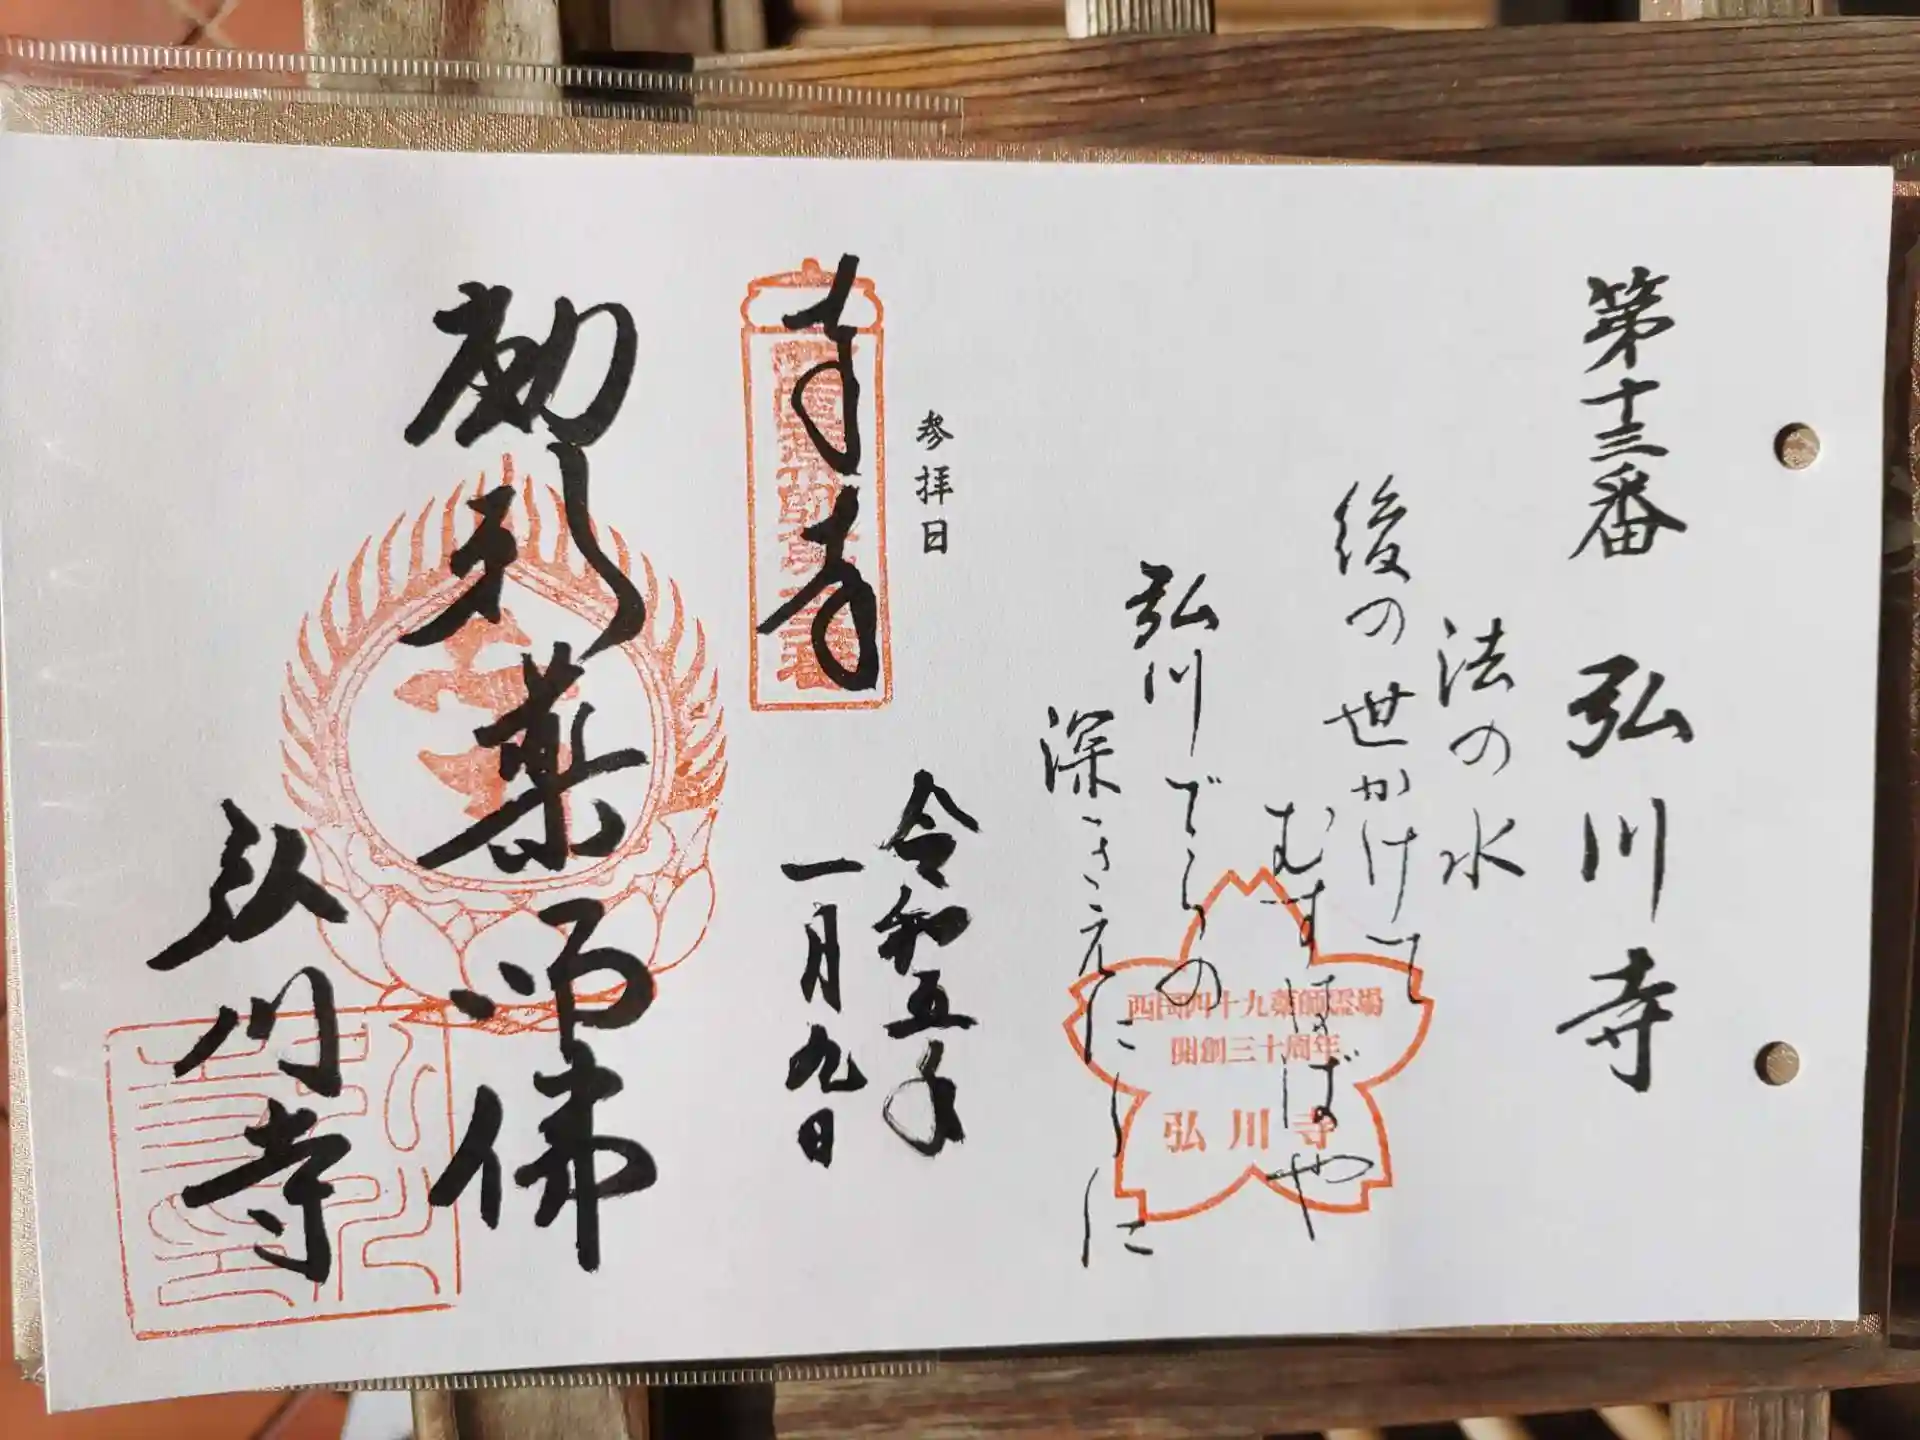 第十三番 弘川寺
法の水
後の世かけて
むすばばや
弘川でらの
深きえにしに
参拝日
令和五年
一月九日
奉拝
薬師佛
弘川寺
西国四十九薬師霊場
開創三十周年
弘川寺